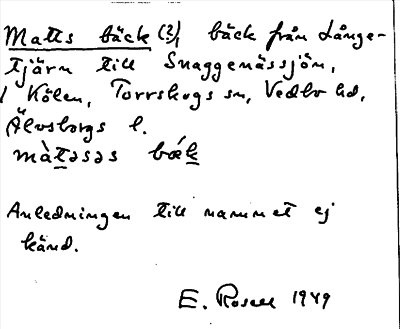 Matts bäck (?), bäck från Långe-
tjärn till Snaggenässjön,
i Kölen, Torrskogs sn, Vedbo hd,
Älvsborgs l.
màtəsəs bǽk
Anledningen till namnet ej
känd.
E. Rosell 1949